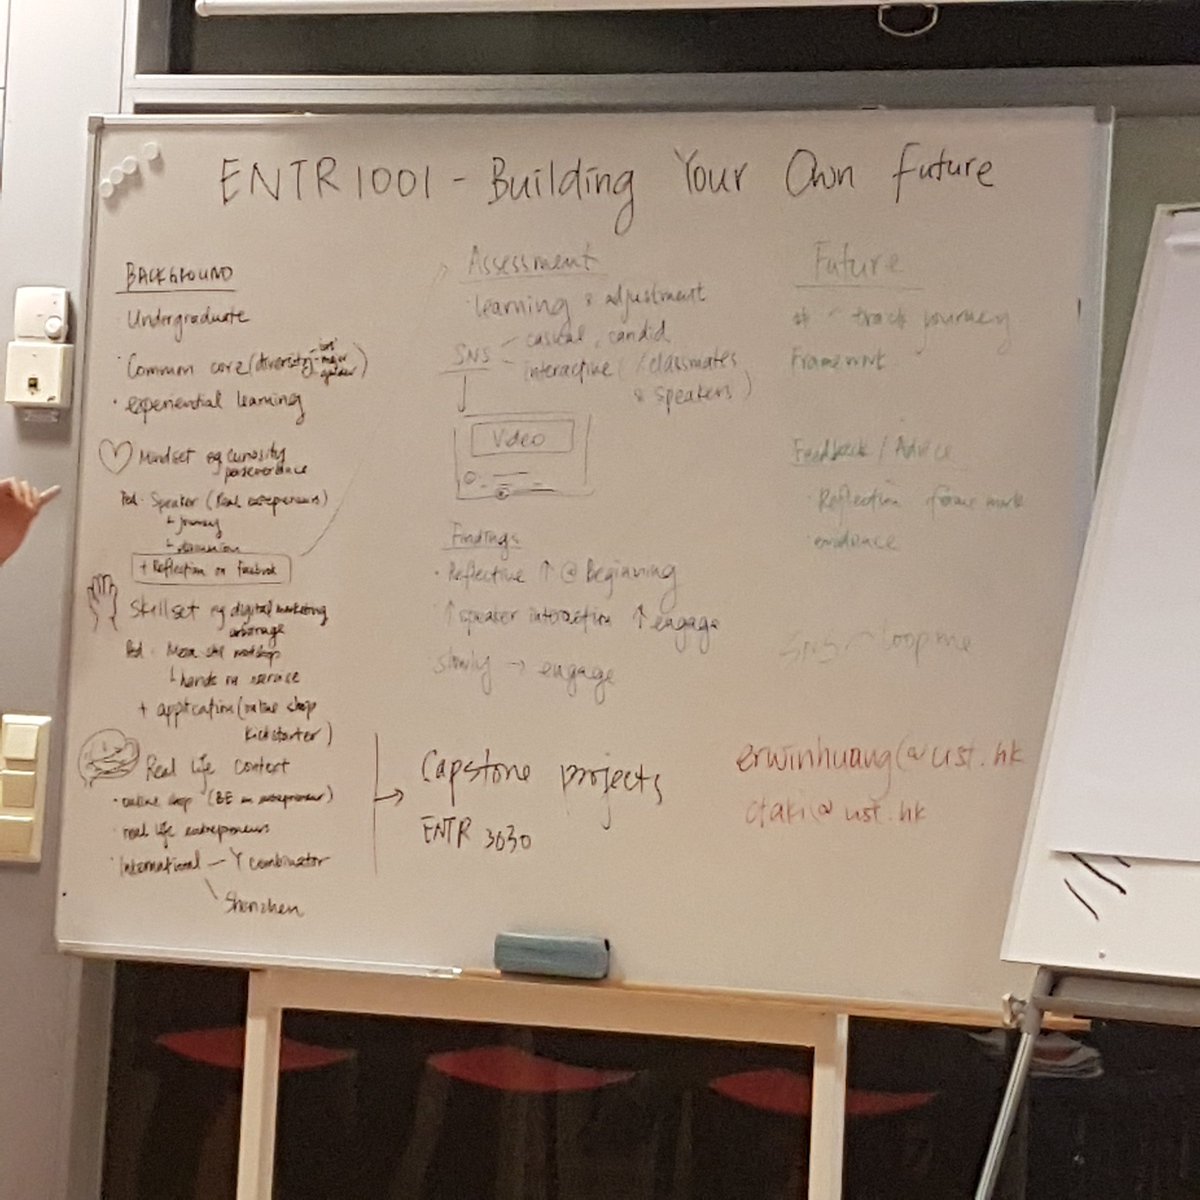 ENTR1001 - Building Your Own Future
BACKGROUND
· Undergraduate
· Common core (diversity)
major
· experiential learning
Mindset eg curiosity
perseverance
Ped · Speaker (Real entrepreneurs)
journey
+ Reflection on facebook
Skillset eg digital marketing
arbitrage
Ped ·
hands on service
+ application (online shop
Kickstarter)
Real life context
· online shop (BE an entrepreneur)
· real life entrepreneurs
· International — Y combinator
Shenzhen
Assessment
· learning & adjustment
SNS
casual, candid
interactive (/classmates
& speakers)
Video
Findings
· Reflective ↑ @ Beginning
· ↑ speaker interaction ↑ engage
slowly → engage
→ Capstone projects
ENTR 3030
Future
track journey
Framework
Feedback / Advice
· Reflection framework
· evidence
SNS
Loop me
erwinhuang@ust.hk
ctaki@ust.hk